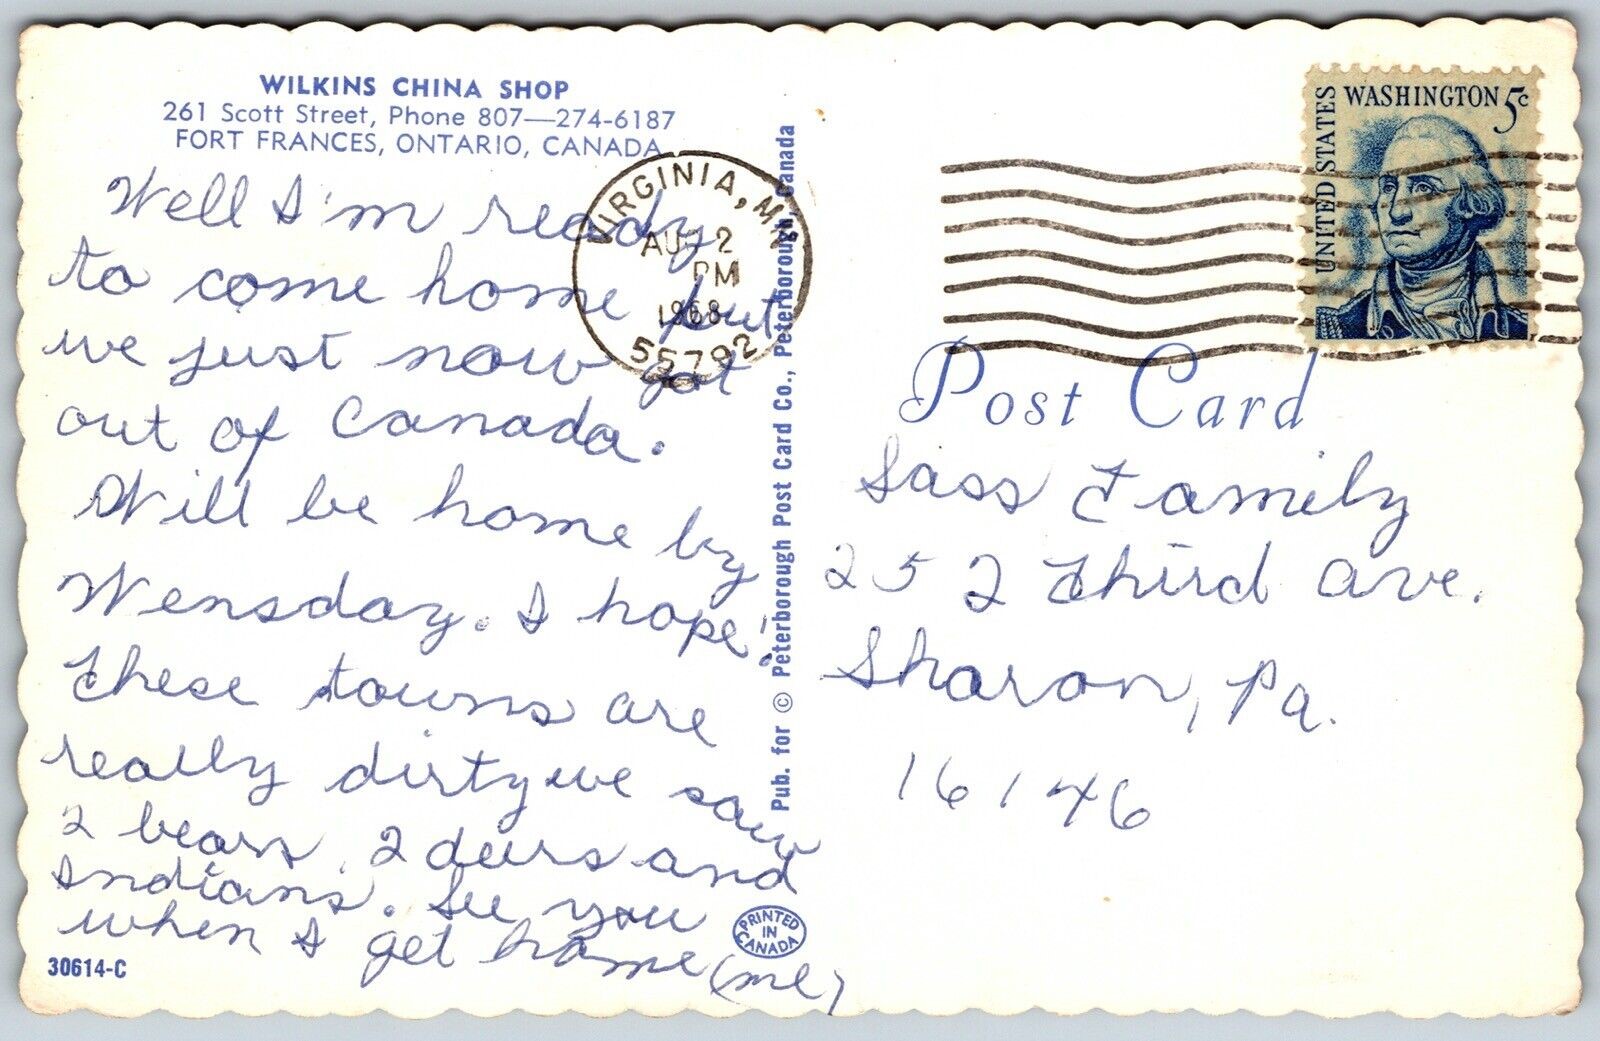 WILKINS CHINA SHOP
261 Scott Street, Phone 807—274-6187
FORT FRANCES, ONTARIO, CANADA
Well I'm ready
to come home but
we just now got
out of Canada.
Will be home by
Wensday. I hope!
These towns are
really dirty we saw
2 bears, 2 deers and
Indians. See you
when I get home (me)
30614-C
PRINTED
IN
CANADA
Pub. for © Peterborough Post Card Co., Peterborough, Canada
VIRGINIA, MN
AUG 2
PM
1968
55792
UNITED STATES
WASHINGTON 5c
Post Card
Sass Family
252 Third Ave.
Sharon, Pa.
16146